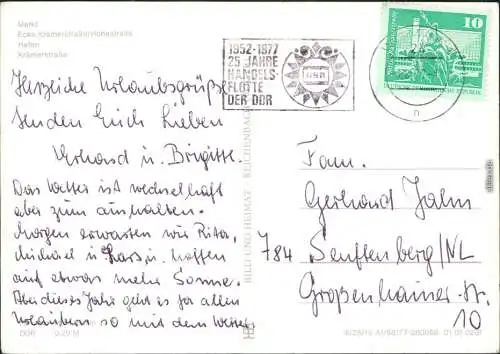 Markt
Ecke Krämerstraße/
Hafen
Krämerstraße
1952-1977
25 JAHRE
HANDELS-
FLOTTE
DER DDR
10
DEUTSCHE DEMOKRATISCHE REPUBLIK
n
Herzliche Urlaubsgrüße
senden Euch Lieben
Erhard u. Brigitte.
Das Wetter ist wechselhaft
aber zum aushalten.
Morgen erwarten wir Rita,
Michael u. Lars u. hoffen
auf etwas mehr Sonne.
Aber dieses Jahr geht es ja allen
Urlaubern so mit dem Wetter
BILD UND HEIMAT REICHENBACH
Fam.
Gerhard Jahn
784 Senftenberg/NL
Großenhainer-Str.
10
DDR 0,20 M